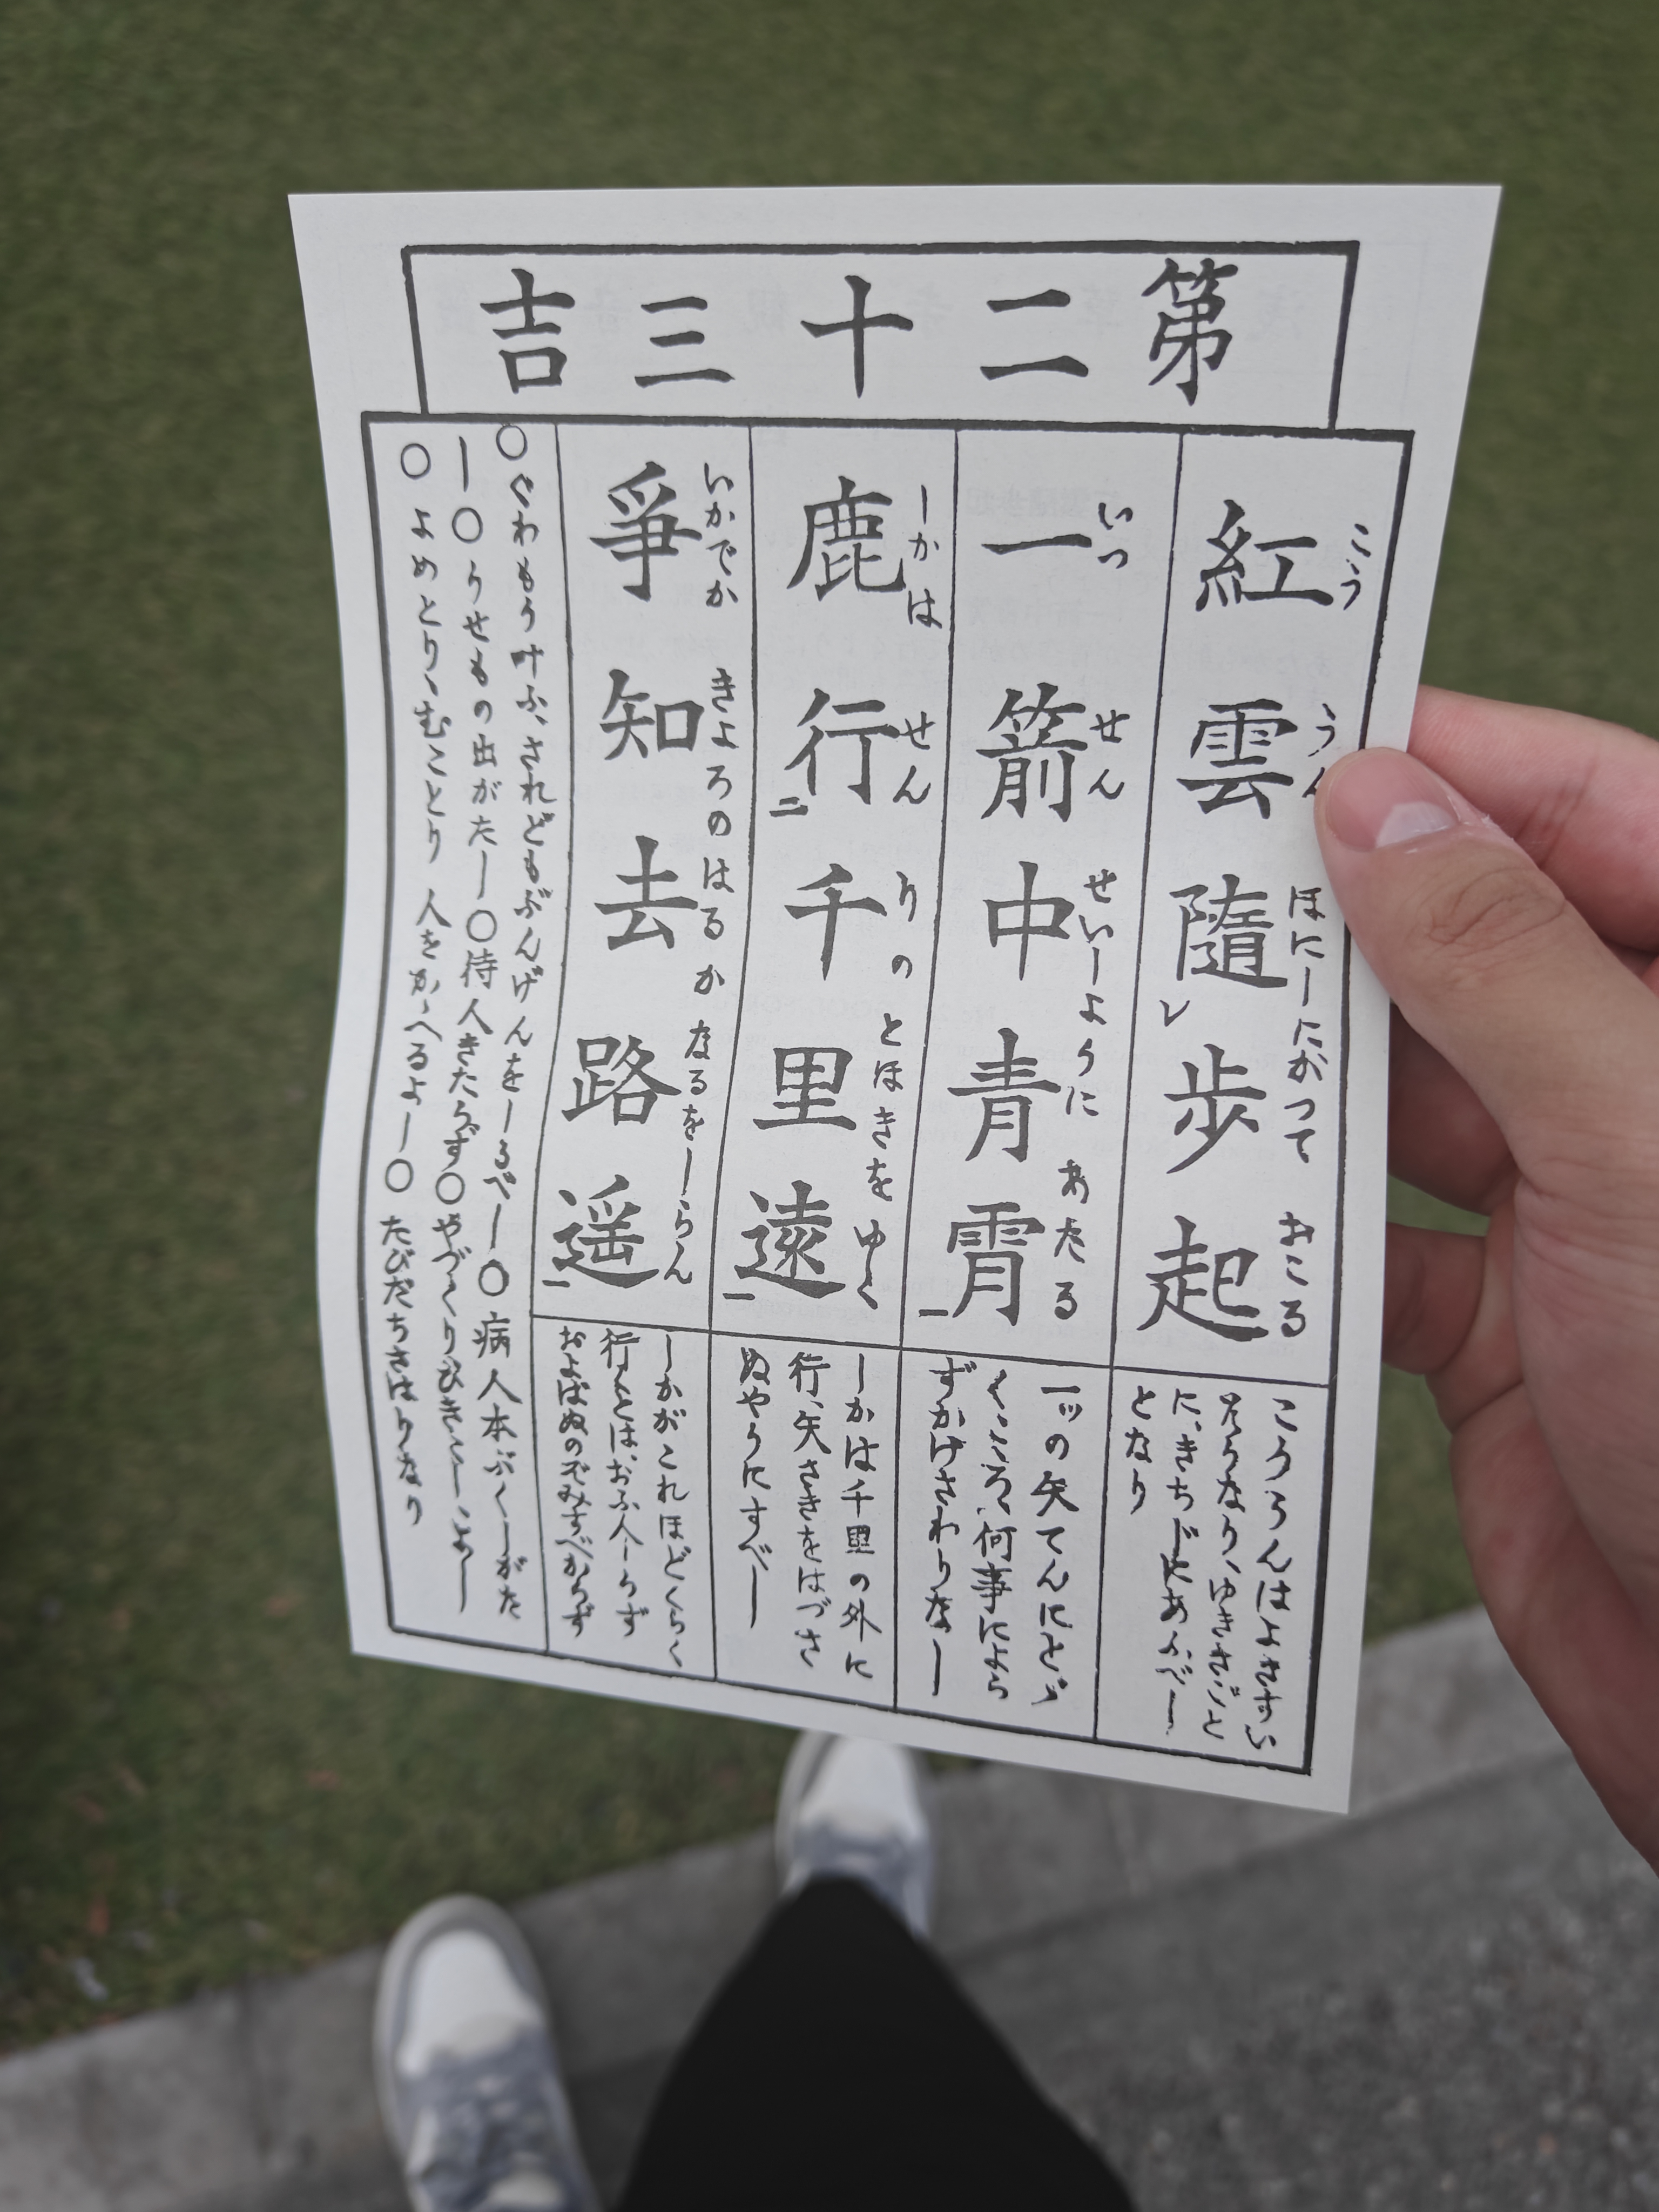 第二十三吉
紅雲隨歩起
こううんほにしにがつておこる
こううんはよきずい
さうなり、ゆきさきごと
に、きちじをあふべし
となり
一箭中青霄
いつせんせいしようにあたる
一ッの矢てんにとゞ
くこゝろ、何事によら
ずかけさわりなし
鹿行千里遠
しかはせんりのとほきをゆく
しかは千里の外に
行、矢さきをはづさ
ぬやうにすべし
爭知去路遥
いかでかきよろのはるかなるをしらん
しかがこれほどくらく
行とは、おふ人しらず
およばぬのぞみすべからず
○ぐわもう叶ふ、されどもぶんげんをしるべし○病人本ぶくしがた
し○うせもの出がたし○待人きたらず○やづくりひきこしよし
○よめとり、むことり人をかゝへるよし○たびだちさはりなり